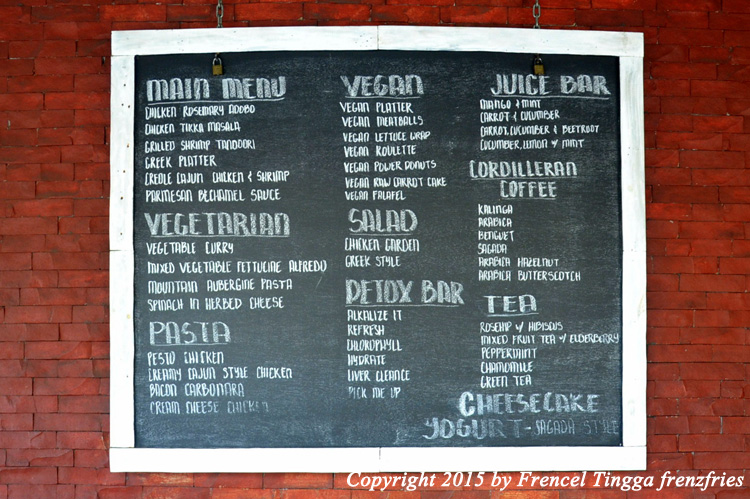 MAIN MENU
CHICKEN ROSEMARY ADOBO
CHICKEN TIKKA MASALA
GRILLED SHRIMP TANDOORI
GREEK PLATTER
CREOLE CAJUN CHICKEN & SHRIMP
PARMESAN BECHAMEL SAUCE
VEGETARIAN
VEGETABLE CURRY
MIXED VEGETABLE FETTUCINE ALFREDO
MOUNTAIN AUBERGINE PASTA
SPINACH IN HERBED CHEESE
PASTA
PESTO CHICKEN
CREAMY CAJUN STYLE CHICKEN
BACON CARBONARA
CREAM CHEESE CHICKEN
VEGAN
VEGAN PLATTER
VEGAN MEATBALLS
VEGAN LETTUCE WRAP
VEGAN ROULETTE
VEGAN POWER DONUTS
VEGAN RAW CARROT CAKE
VEGAN FALAFEL
SALAD
CHICKEN GARDEN
GREEK STYLE
DETOX BAR
ALKALIZE IT
REFRESH
CHLOROPHYLL
HYDRATE
LIVER CLEANCE
PICK ME UP
JUICE BAR
MANGO & MINT
CARROT & CUCUMBER
CARROT, CUCUMBER & BEETROOT
CUCUMBER, LEMON & MINT
CORDILLERAN
COFFEE
KALINGA
ARABICA
BENGUET
SAGADA
ARABICA HAZELNUT
ARABICA BUTTERSCOTCH
TEA
ROSEHIP W/ HIBISCUS
MIXED FRUIT TEA W/ ELDERBERRY
PEPPERMINT
CHAMOMILE
GREEN TEA
CHEESECAKE
YOGURT - SAGADA STYLE
Copyright 2015 by Frencel Tingga frenzfries